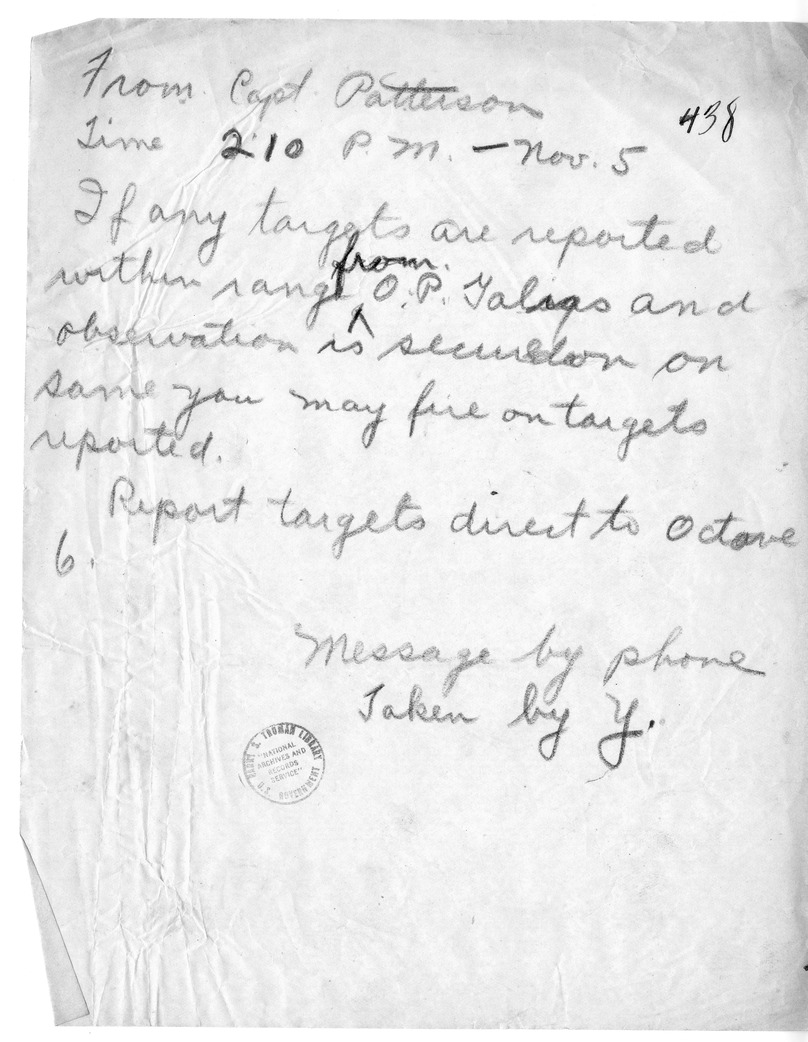 From Capt. Patterson
438
Time 2:10 P.M. — Nov. 5
If any targets are reported
within range from O.P. and
observation is secured on
same you may fire on targets
reported.
Report targets direct to Octave
6.
Message by phone
Taken by Y.
HARRY S. TRUMAN LIBRARY
"NATIONAL
ARCHIVES AND
RECORDS
SERVICE"
U.S. GOVERNMENT